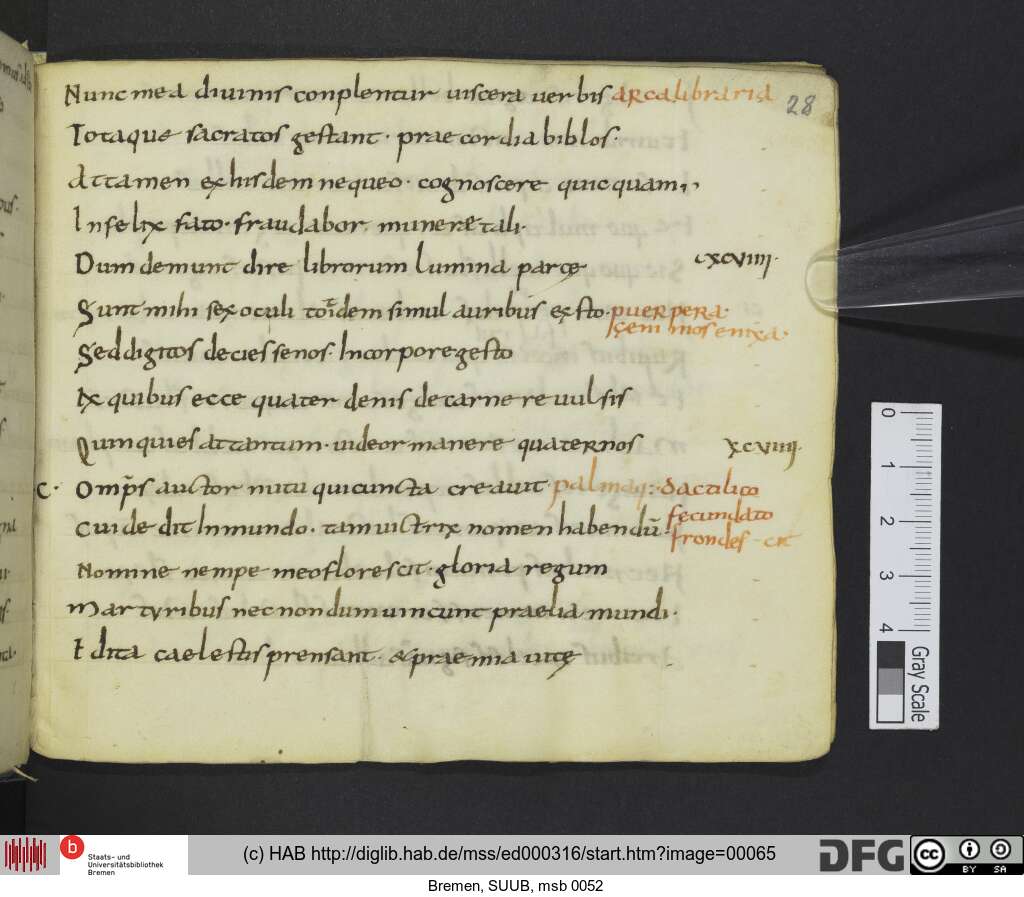 Nunc mea diuinis conplentur uiscera uerbis arca libraria 28
Totaque sacratos gestant · praecordia biblos ·
Attamen ex hisdem nequeo · cognoscere quicquam ;,
Infelix fato · fraudabor munere tali ·
Dum demunt dire librorum lumina parcę
xcviiii ·
Sunt mihi sex oculi totidem simul auribus exsto · puerpera ·
geminos enixa ·
Sed digitos decies senos · In corpore gesto
Ex quibus ecce quater denis de carne reuulsis
Quinquies at tantum · uideor manere quaternos xcviiii ·
C · Omp̄s auctor nutu qui cuncta creauit palma q: · dactilico
Cui dedit In mundo · tam uictrix nomen habendū · fecundato
frondes ·
Nomine nempe meo florescit · gloria regum
Martyribus necnon dum uincunt praelia mundi ·
Edita caelestis prensant · & praemia uitę
0 1 2 3 4
Gray Scale
b
Staats- und
Universitätsbibliothek
Bremen
(c) HAB http://diglib.hab.de/mss/ed000316/start.htm?image=00065
DFG
cc BY SA
Bremen, SUUB, msb 0052